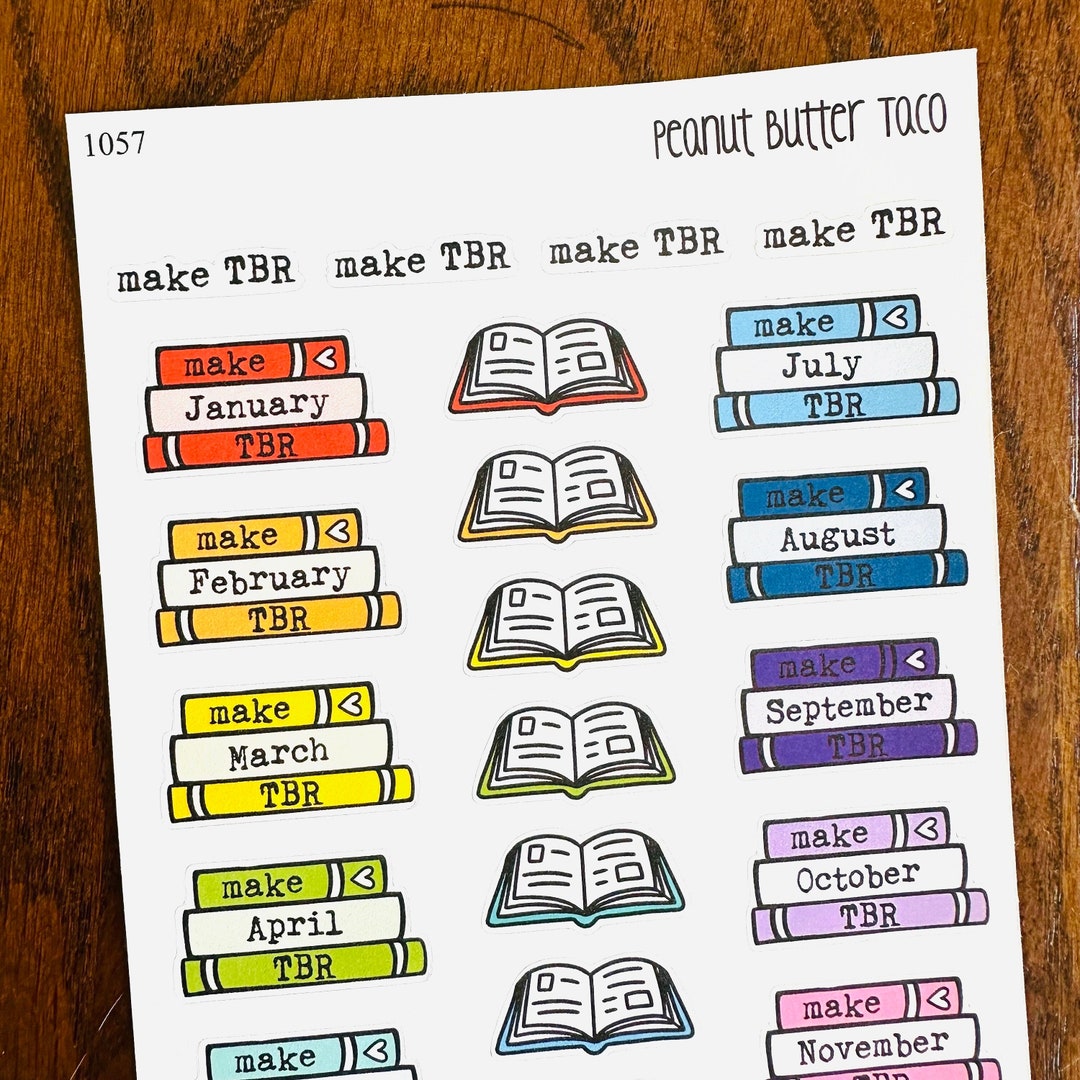 1057
Peanut Butter Taco
make TBR
make TBR
make TBR
make TBR
make
January
TBR
make
February
TBR
make
March
TBR
make
April
TBR
make
make
July
TBR
make
August
TBR
make
September
TBR
make
October
TBR
make
November
TBR